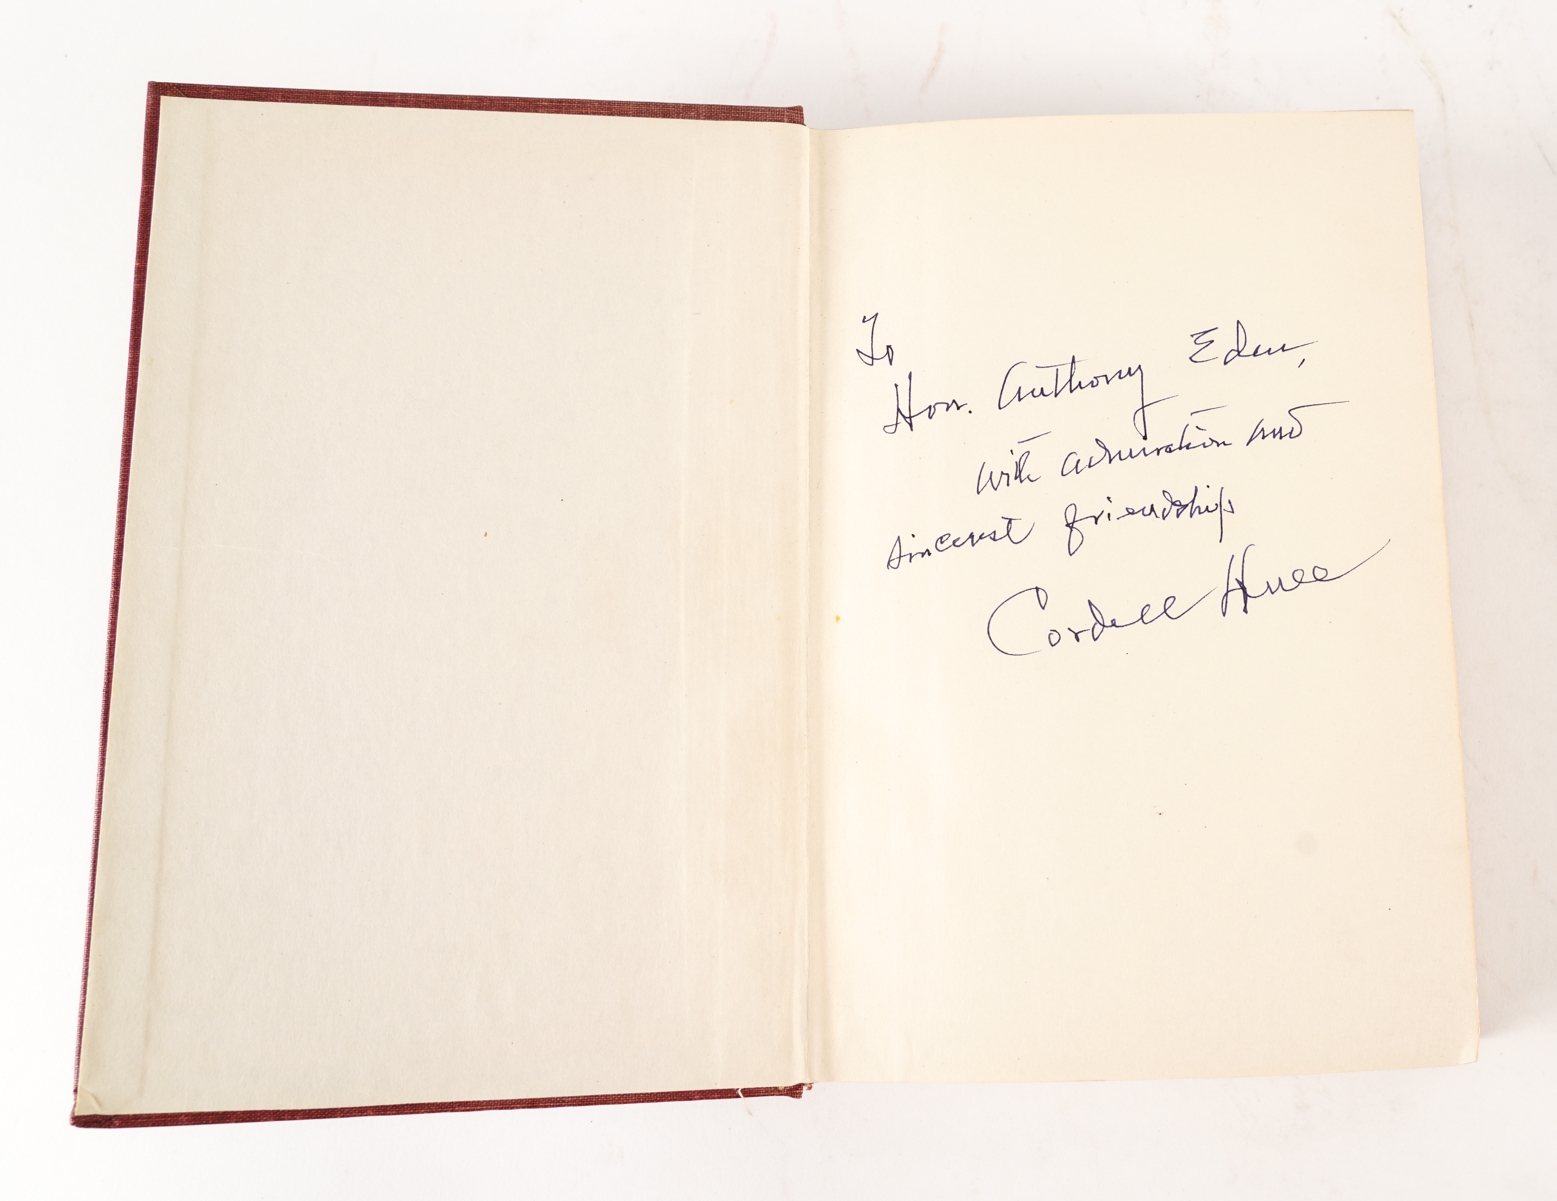 To
Hon. Anthony Eden,
with admiration and
sincerest friendship
Cordell Hull